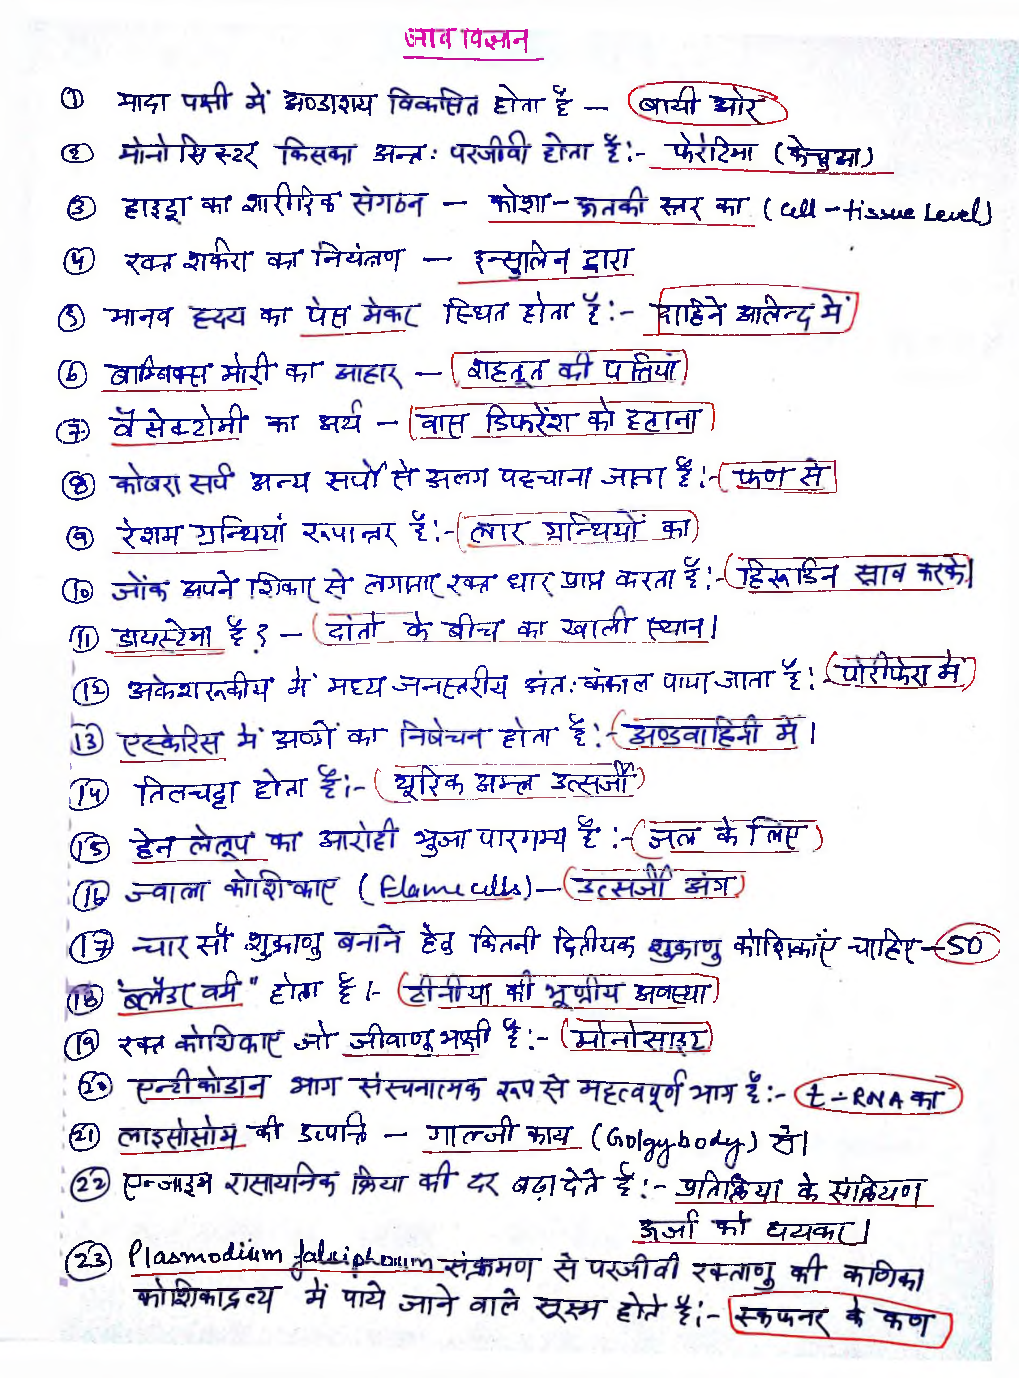 जीव विज्ञान
① मादा पक्षी में अण्डाशय विकसित होता है – बायी ओर
② मोनोसिस्टर किसका अन्तः परजीवी होता है:- फेरेटिमा (केचुआ)
③ हाइड्रा का शारीरिक संगठन – कोशा-ऊतकी स्तर का (Cell-tissue Level)
④ रक्त शर्करा का नियंत्रण – इन्सुलिन द्वारा
⑤ मानव हृदय का पेस मेकर स्थित होता है:- दाहिने आलिन्द में
⑥ बाम्बिक्स मोरी का आहार – शहतूत की पत्तियां
⑦ वैसेक्टोमी का अर्थ – वास डिफरेंश को हटाना
⑧ कोबरा सर्प अन्य सर्पो से अलग पहचाना जाता है:- फण से
⑨ रेशम ग्रन्थियां रूपान्तर है:- लार ग्रन्थियों का
⑩ जोंक अपने शिकार से लगातार रक्त धार प्राप्त करता है:- हिरूडिन स्राव करके।
⑪ डायस्टेमा है? – दांतो के बीच का खाली स्थान।
⑫ अकेशरूकीय में मध्य जनस्तरीय अंतः कंकाल पाया जाता है: पोरीफेरा में
⑬ एस्केरिस में अण्डों का निषेचन होता है:- अण्डवाहिनी में।
⑭ तिलचट्टा होता है:- यूरिक अम्ल उत्सर्जी
⑮ हेन लेलूप का आरोही भुजा पारगम्य है:- जल के लिए
⑯ ज्वाला कोशिकाए (Flame cells) – उत्सर्जी अंग
⑰ चार सौ शुक्राणु बनाने हेतु कितनी द्वितीयक शुक्राणु कोशिकाएँ चाहिए – 50
⑱ "ब्लैडर वर्म" होता है।- टीनीया की भ्रूणीय अवस्था
⑲ रक्त कोशिकाए जो जीवाणु भक्षी है:- मोनोसाइट
⑳ एन्टीकोडान भाग संरचनात्मक रूप से महत्वपूर्ण भाग है:- t-RNA का
㉑ लाइसोसोम की उत्पत्ति – गाल्जी काय (Golgybody) से।
㉒ एन्जाइम रासायनिक क्रिया की दर बढ़ा देते है:- प्रतिक्रिया के सक्रियण
ऊर्जा को घटाकर।
㉓ Plasmodium falsiphorum संक्रमण से परजीवी रक्ताणु की कणिका
कोशिकाद्रव्य में पाये जाने वाले सूक्ष्म होते है:- स्कफनर के कण